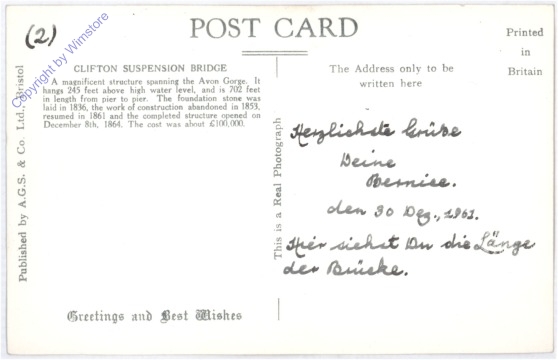 (2)
POST CARD
Printed
in
Britain
Copyright by Wimstore
CLIFTON SUSPENSION BRIDGE
A magnificent structure spanning the Avon Gorge. It
hangs 245 feet above high water level, and is 702 feet
in length from pier to pier. The foundation stone was
laid in 1836, the work of construction abandoned in 1853,
resumed in 1861 and the completed structure opened on
December 8th, 1864. The cost was about £100,000.
The Address only to be
written here
Published by A.G.S. & Co. Ltd., Bristol
This is a Real Photograph
Herzlichste Grüße
Deine
Bernice.
den 30 Dez., 1961.
Hier siehst Du die Länge
der Brücke.
Greetings and Best Wishes